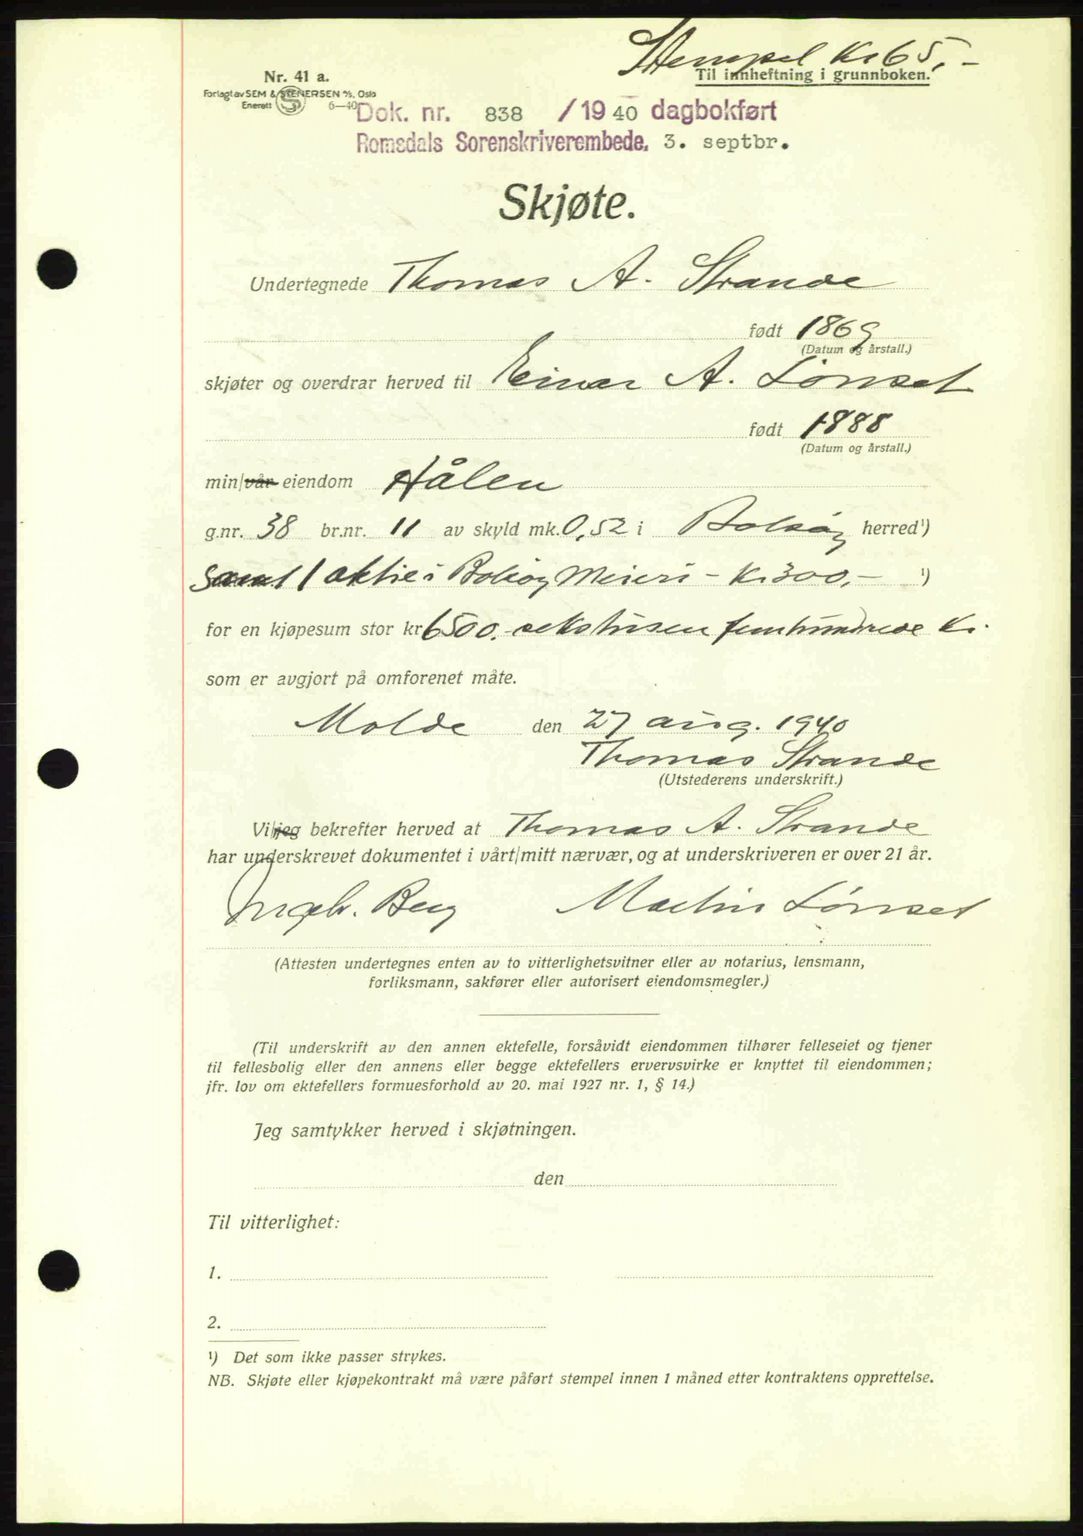 Stempel Kr 65,-
Nr. 41 a.
Til innheftning i grunnboken.
Forlagt av SEM & STENERSEN A/S, Oslo
Enerett S 6—40
Dok. nr. 838 /1940 dagbokført
Romsdals Sorenskriverembede, 3. septbr.
Skjøte.
Undertegnede Thomas A. Strande
født 1869
(Datum og årstall.)
skjøter og overdrar herved til Einar A. Lønset
født 1888
(Datum og årstall.)
min/vår eiendom Hålen
g.nr. 38 br.nr. 11 av skyld mk. 0,52 i Bolsøy herred¹)
samt 1 aktie i Bolsøy Meieri - Kr 300,- ¹)
for en kjøpesum stor kr 6500. sekstusen femhundrede Kr.
som er avgjort på omforenet måte.
Molde den 27 aug. 1940
Thomas Strande
(Utstederens underskrift.)
Vi/jeg bekrefter herved at Thomas A. Strande
har underskrevet dokumentet i vårt/mitt nærvær, og at underskriveren er over 21 år.
Ingebr. Berg Martin Lønset
(Attesten undertegnes enten av to vitterlighetsvitner eller av notarius, lensmann,
forliksmann, sakfører eller autorisert eiendomsmegler.)
(Til underskrift av den annen ektefelle, forsåvidt eiendommen tilhører felleseiet og tjener
til fellesbolig eller den annens eller begge ektefellers ervervsvirke er knyttet til eiendommen;
jfr. lov om ektefellers formuesforhold av 20. mai 1927 nr. 1, § 14.)
Jeg samtykker herved i skjøtningen.
den
Til vitterlighet:
1.
2.
¹) Det som ikke passer strykes.
NB. Skjøte eller kjøpekontrakt må være påført stempel innen 1 måned etter kontraktens opprettelse.